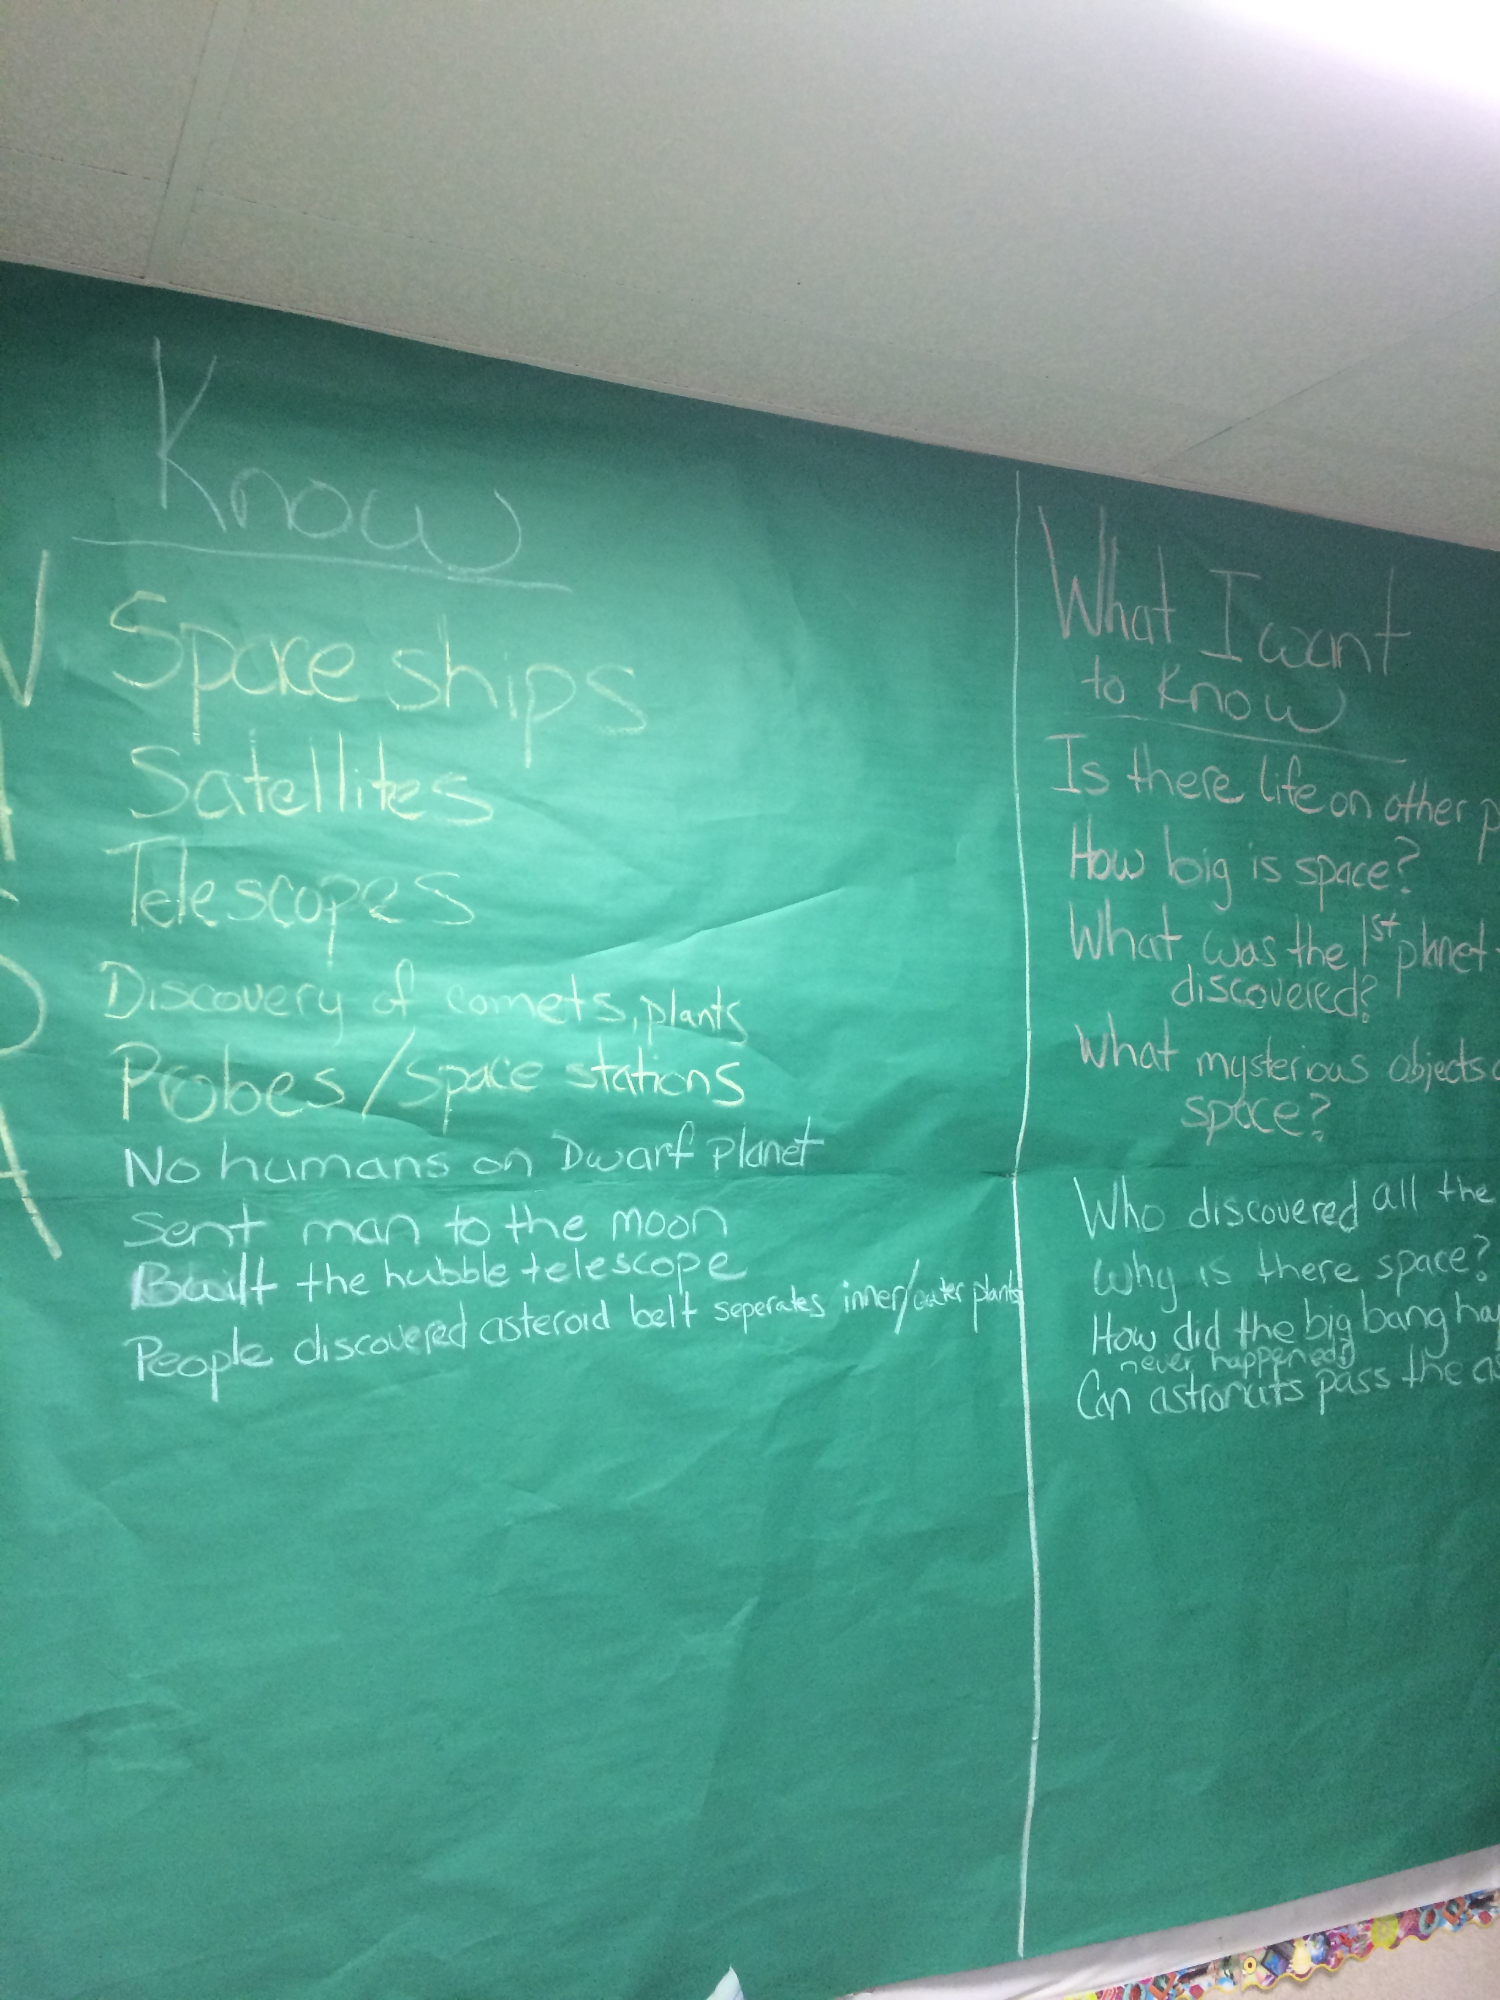 Know
Spaceships
Satellites
Telescopes
Discovery of comets, plants
Probes/space stations
No humans on Dwarf Planet
Sent man to the moon
Built the hubble telescope
People discovered asteroid belt seperates inner/outer plants
What I want
to Know
Is there life on other
How big is space?
What was the 1st planet
discovered?
What mysterious objects
space?
Who discovered all the
Why is there space?
How did the big bang
never happened?
Can astronauts pass the
N
A
S
A